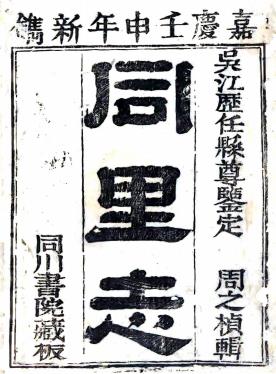 嘉慶壬申年新鐫
吳江歷任縣尊鑒定
周之楨輯
同里志
同川書院藏板